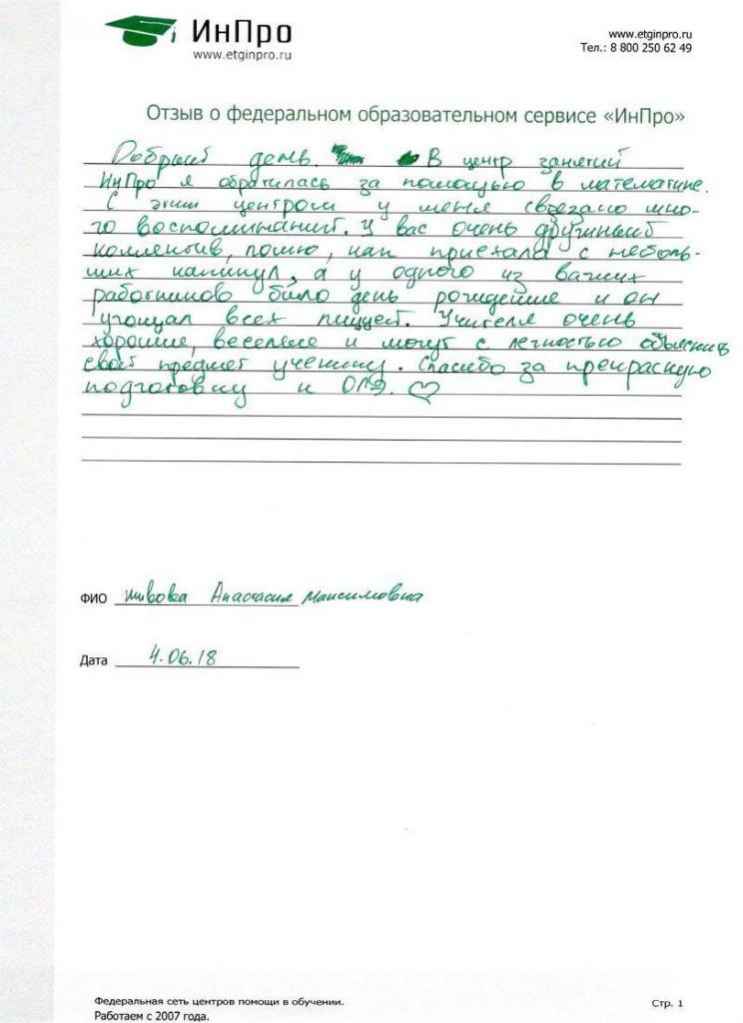 ИнПро
www.etginpro.ru
www.etginpro.ru
Тел.: 8 800 250 62 49
Отзыв о федеральном образовательном сервисе «ИнПро»
Добрый день. В центр занятий
ИнПро я обратилась за помощью в математике.
С этим центром у меня связано мно-
го воспоминаний. У вас очень дружный
коллектив, помню, как приехала с неболь-
ших каникул, а у одного из ваших
работников было день рождение и он
угощал всех пиццей. Учителя очень
хорошие, веселые и могут с легностью объяснить
свой предмет ученику. Спасибо за прекрасную
подготовку к ОГЭ. ♡
ФИО Анастасия Максимовна
Дата 4.06.18
Федеральная сеть центров помощи в обучении.
Работаем с 2007 года.
Стр. 1